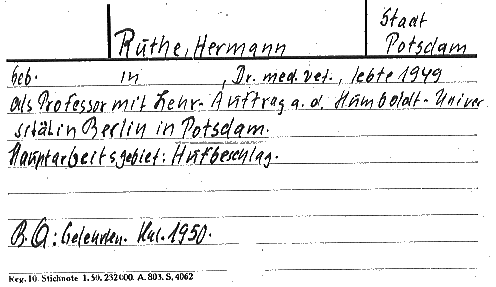 Stadt
Ruthe, Hermann Potsdam
geb. in , Dr. med. vet., lebte 1949
als Professor mit Lehr-Auftrag a. d. Humboldt-Univer
sität in Berlin in Potsdam.
Hauptarbeitsgebiet: Hufbeschlag.
B. Q: Gelehrten. Kal. 1950.
Reg. 10. Stichnote 1. 50. 232000. A. 803. S. 4062